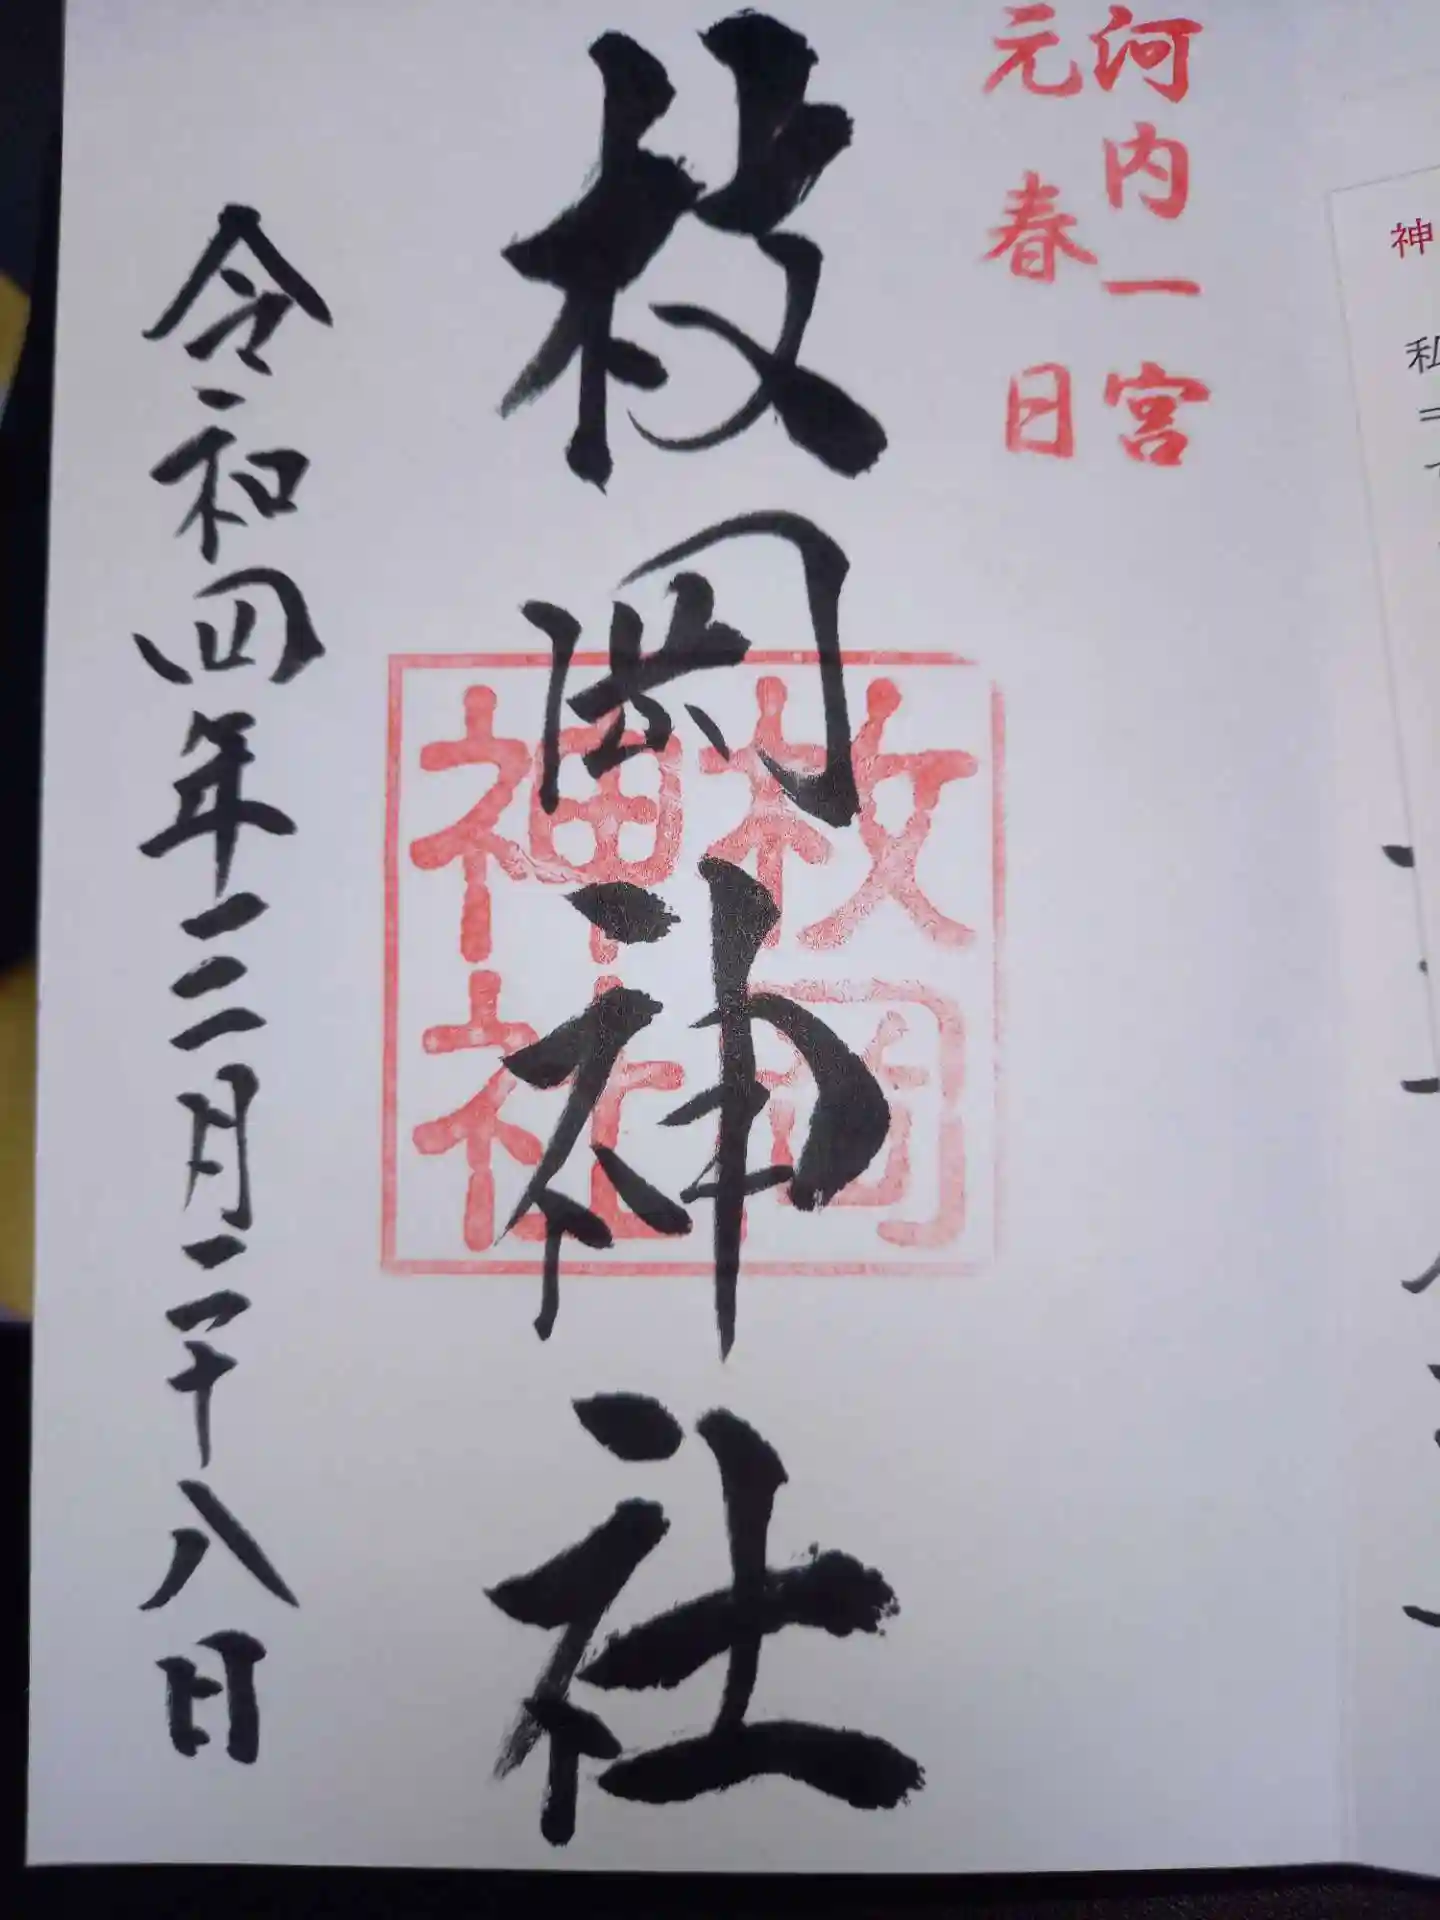 神
河内一宮
元春日
枚岡神社
枚岡
神社
令和四年三月二十八日